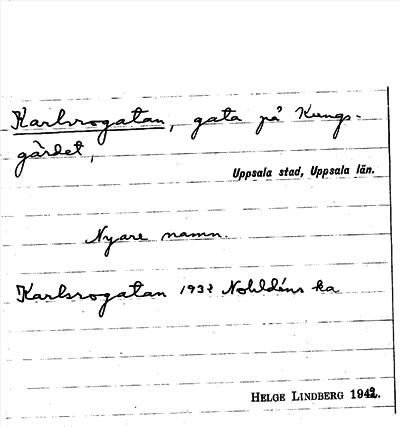 Karlsrogatan, gata på Kungs-
gärdet,
Uppsala stad, Uppsala län.
Nyare namn.
Karlsrogatan 193? Nohldéns ka
HELGE LINDBERG 1942.